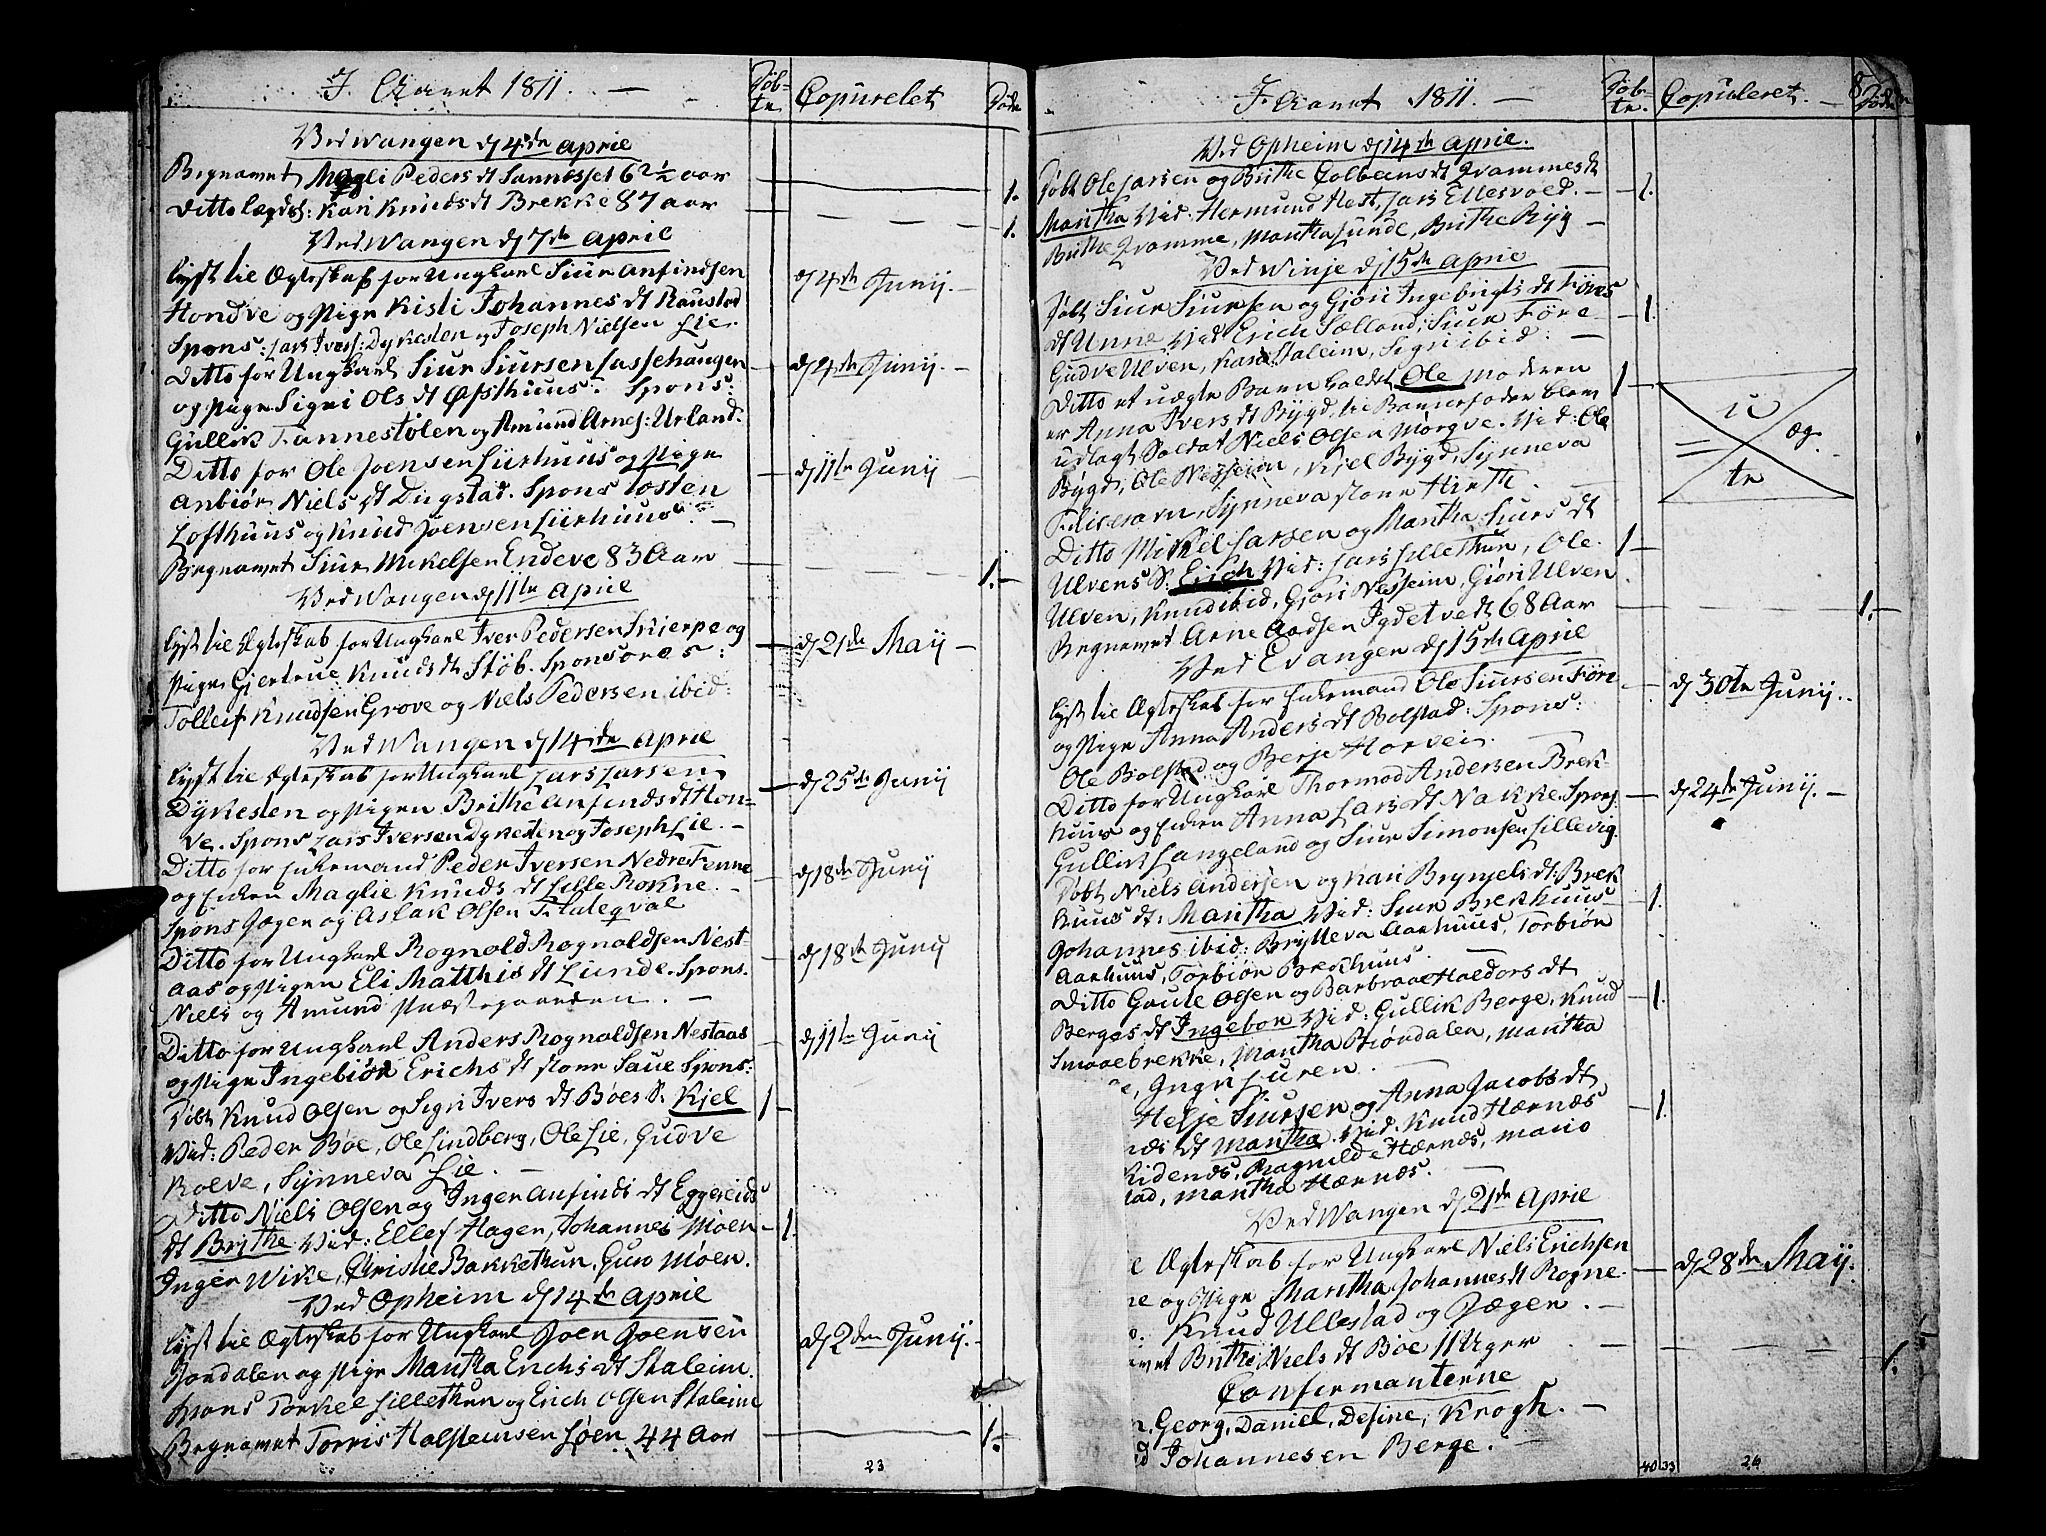 I Aaret 1811. — Döb-te. Copurelet Döde
Ved Wangen d 4de April
Begravet Magli Peders dt Sannesset 62½ aar 1.
Ditto lægds: Kari Knuds dt Brekke 87 aar 1.
Ved Wangen d 7de April
Lyst til Ægteskab for Ungkarl Siur Anfindsen
Hondve og Pige Kisti Johannes dt Raustad d 4de Junij.
Spons: Lars Ivers: Dykesten og Joseph Nielsen Lie.
Ditto for Ungkarl Siur Siursen Sassehaugen d 4de Junij.
og Pige Sigri Ols dt Øfsthuus. Spons:
Gullik Finnestølen og Amund Arnes: Urland.
Ditto for Ole Joensen Lirhuus og Pige d 11te Junij
Anbiør Niels dt Dugstad. Spons Tosten
Lofthuus og Knud Joensen Lirhuus. —
Begravet Siur Mikelsen Endeve 83 Aar 1.
Ved Wangen d 11te April
Lyst til Ægteskab for Ungkarl Iver Pedersen Skierpe og d 21de Maij
Pige Giertrue Knuds dt Støb. Sponsores:
Tolleif Knudsen Grove og Niels Pedersen ibid:
Ved Wangen d 14de April
Lyst til Ægteskab for Ungkarl Lars Larsen
Dykesten og Pigen Brithe Anfinds dt Hon= d 25de Junij
ve. Spons Lars Iversen Dykesten og Joseph Lie. —
Ditto for Enkemand Peder Iversen Nedre Fenne d 18de Junij
og Enken Maglie Knuds dt Lille Rokne. —
Spons Jagen og Aslak Olsen Flateqval
Ditto for Ungkarl Rognold Rognoldsen Nest- d 18de Junij
aas og Pigen Eli Matthis dt Lunde. Spons.
Niels og Amund Præstegaarden. —
Ditto for Ungkarl Anders Rognoldsen Nestaas d 11te Junij
og Pige Ingebiør Erichs dt store Saue Spons:
Døbt Knud Olsen og Sigri Ivers dt Bøes S. Kjel 1
Vid: Peder Bøe, Ole Lindberg, Ole Lie, Gudve
Rolve, Synneva Lie. —
Ditto Niels Olsen og Inger Anfinds dt Eggereids
dt Brithe. Vid: Ellef Hagen, Johannes Moen 1.
Inger Wike, Christie Bakkethun, Guro Moen.
Ved Opheim d 14de April
Lyst til Ægteskab for Ungkarl Joen Joensen d 2den Junij.
Jordalen og Pige Mantha Erichs dt Staleim.
Spons Torkel Lillethun og Erich Olsen Staleim
Begravet Torris Halsteinsen Løen 44 Aar 1.
23
I Aaret 1811. — Döb-te. Copuleret. — Döde
Ved Opheim d 14de April.
Døbt Ole Larsen og Brithe Colbeens dt Qvammes dt 1.
Maritha Vid: Hermund Hest, Lars Ellesvold.
Brithe Qvamme, Mantha Lunde, Brithe Ryg
Ved Winje d 15de April
Døbt Siur Siursen og Gjøri Ingebrigts dt Føres
dt Unne Vid Erich Sælland, Siur Føre 1.
Gudve Ulven, Kari Staleim, Sigri ibid. —
Ditto et uægte Barn kaldet Ole Moderen 1
er Anna Ivers dt Bygd, til Barnefader blev
udlagt Soldat Niels Olsen Mørgve. Vid: Ole
Bygd, Ole Nesheim, Kjel Bygd, Synneva
Synneva store Hirth.
u æg. te
Ditto Mikkel Larsen og Mantha Siurs dt
Ulvens S. Erich Vid: Lars Lillethun, Ole 1
Ulven, Knud ibid, Gjøri Nesheim, Giøri Ulven.
Begravet Arne Aadsen Tgdetvedt 68 Aar 1.
Ved Evangen d 15de April
Lyst til Ægteskab for Enkemand Ole Siursen Føre d 30te Junij.
og Pige Anna Anders dt Bolstad: Spons:
Ole Bolstad og Berje Horvei.
Ditto for Ungkarl Thormod Andersen Brek-
huus og Enken Anna Lars dt Nakke. Spons d 24de Junij. —
Gullik Langeland og Siur Simonsen Lillevig.
Døbt Niels Andersen og Kari Brynjels dt: Brek
huus dt: Maritha Vid: Siur Brekhuus 1.
Johannes ibid: Brytteva Aarhuus, Torbiør
Aarhuus, Torbiør Brekhuus.
Ditto Goute Olsen og Barbraae Haldors dt 1.
Berges dt Ingebor Vid: Gullik Berge, Knud
Smaaebrekke, Mantha Biøndalen, Maritha
e, Inger Furen. —
Helje Siursen og Anna Jacobs dt 1.
dt Mantha. Vid. Knud Hærnæs
Ragnilde Hærnæs, Mario
tad, Mantha Hærnæs. —
Ved Wangen d 21de April
e Ægteskab for Ungkarl Niels Erichsen
ne og Pige Mantha Johannes dt Rogne. d 28de Maij.
Knud Ullestad og Jægen. —
vet Brithe Niels dt Bøe 11 Uger 1.
Confirmanterne
n, Georg, Daniel, Define, Krogh. —
d Johannesen Berge. —
40 33 24